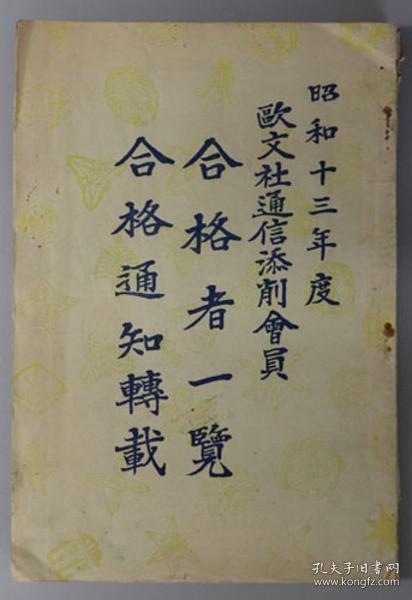 昭和十三年度
歐文社通信添削會員
合格者一覽
合格通知轉載
孔夫子旧书网
www.kongfz.com